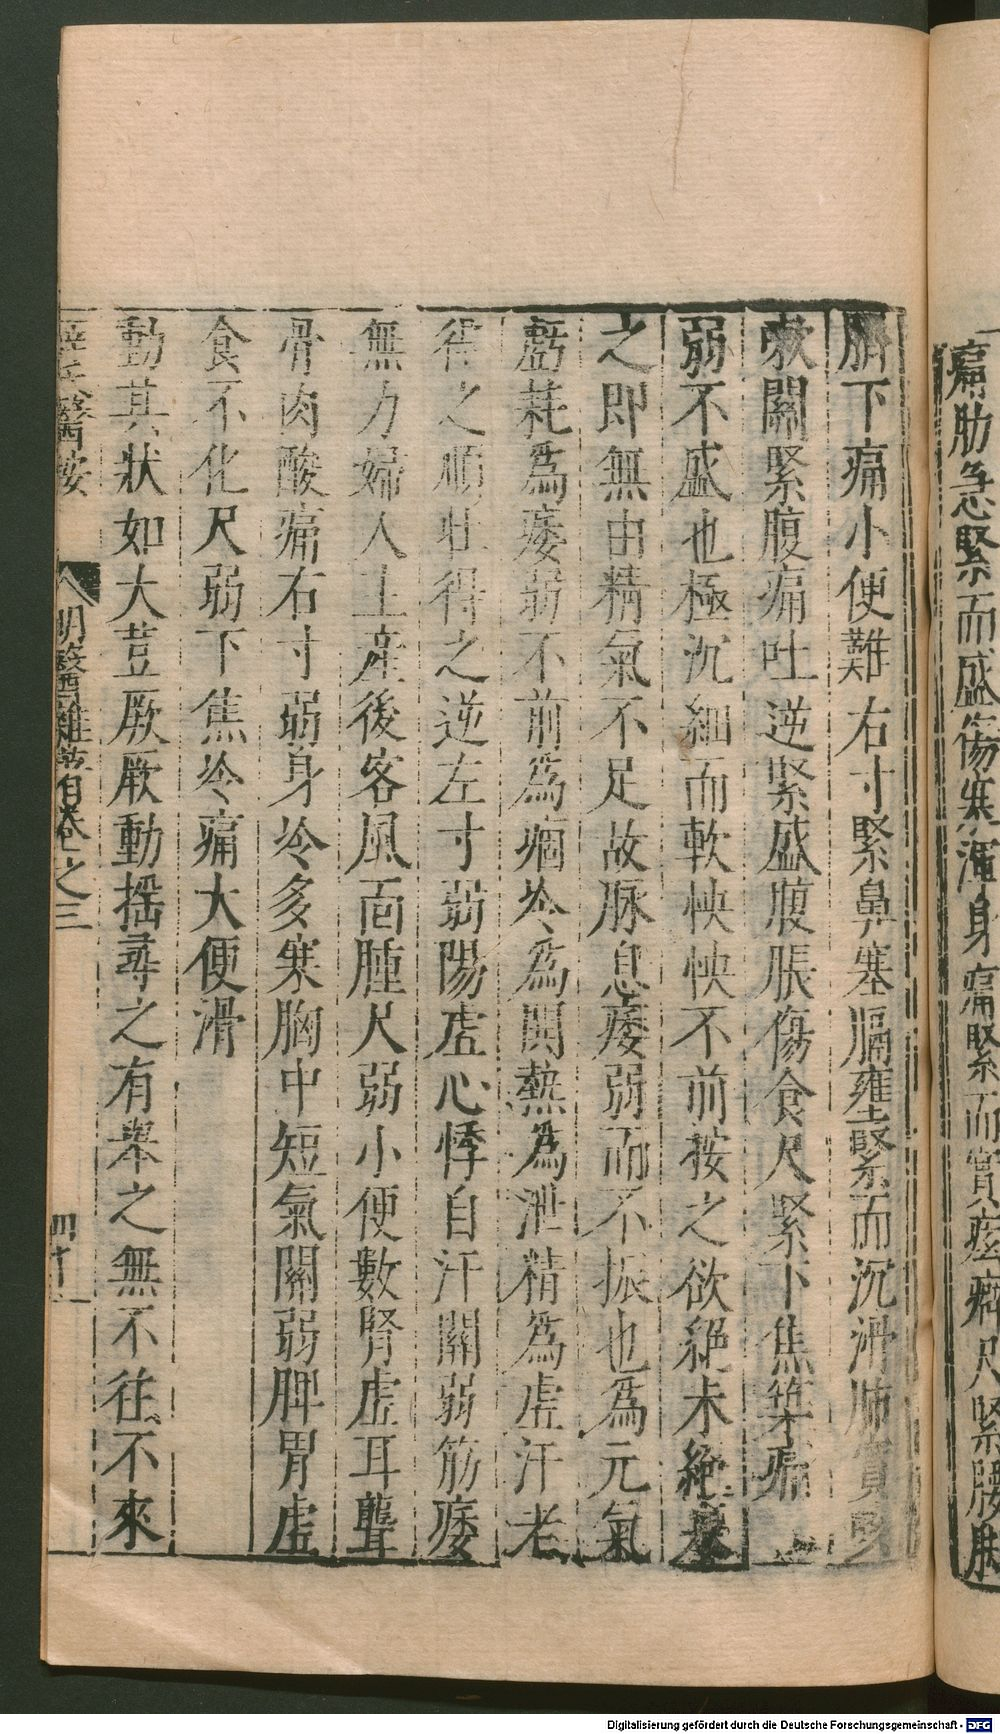 痛肋急緊而盛傷寒渾身痛緊而實痃癖尺緊腰脚
臍下痛小便難右寸緊鼻塞膈壅緊而沉滑肺實咳
嗽關緊腹痛吐逆緊盛腹脹傷食尺緊下焦築痛
弱不盛也極沉細而軟怏怏不前按之欲絕未絕舉
之即無由精氣不足故脉息痿弱而不振也為元氣
虧耗為痿弱不前為痼冷為関熱為泄精為虛汗老
得之順壯得之逆左寸弱陽虛心悸自汗關弱筋痿
無力婦人主產後客風面腫尺弱小便數腎虛耳聾
骨肉酸痛右寸弱身冷多寒胸中短氣關弱脾胃虛
食不化尺弱下焦冷痛大便滑
動其狀如大荳厥厥動揺尋之有舉之無不往不來
薛氏醫按 明醫雜著卷之三 四十一
Digitalisierung gefördert durch die Deutsche Forschungsgemeinschaft - DFG